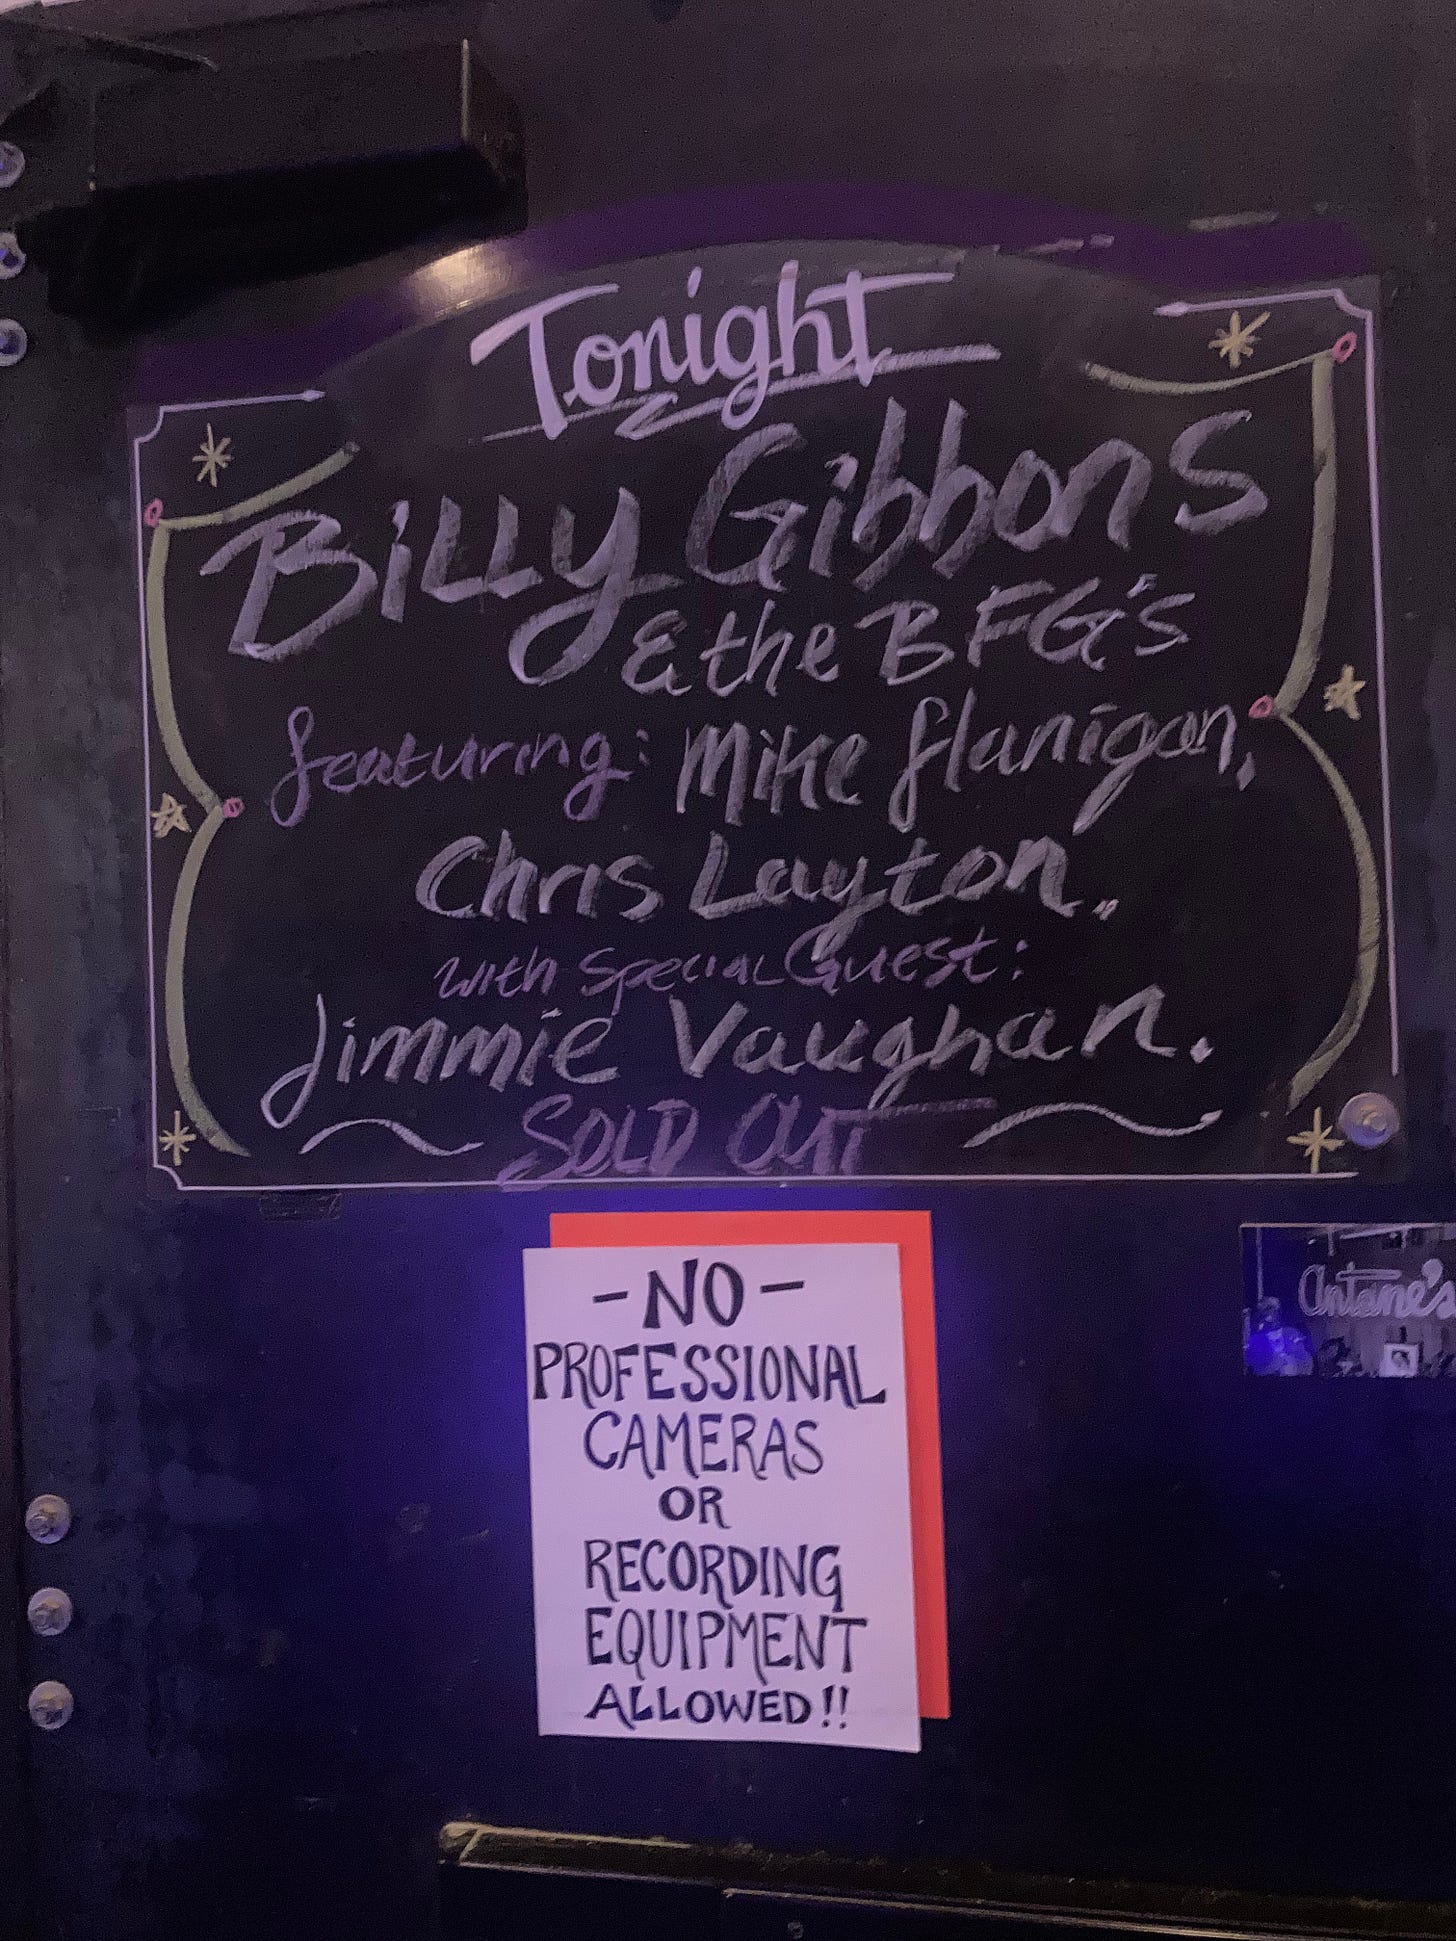 Tonight
Billy Gibbons
& the BFG's
featuring: Mike flanigan,
Chris Layton.
with Special Guest:
Jimmie Vaughan.
SOLD OUT
- NO -
PROFESSIONAL
CAMERAS
OR
RECORDING
EQUIPMENT
ALLOWED!!
Antone's